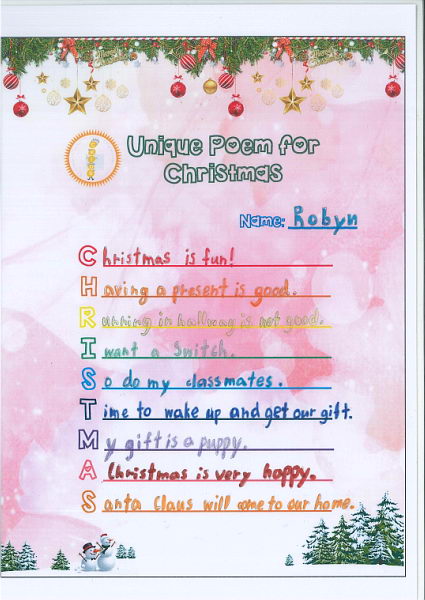 Unique Poem for
Christmas
Name: Robyn
Christmas is fun!
Having a present is good.
Running in hallway is not good.
I want a Switch.
So do my classmates.
Time to wake up and get our gift.
My gift is a puppy.
A Christmas is very happy.
Santa Claus will come to our home.